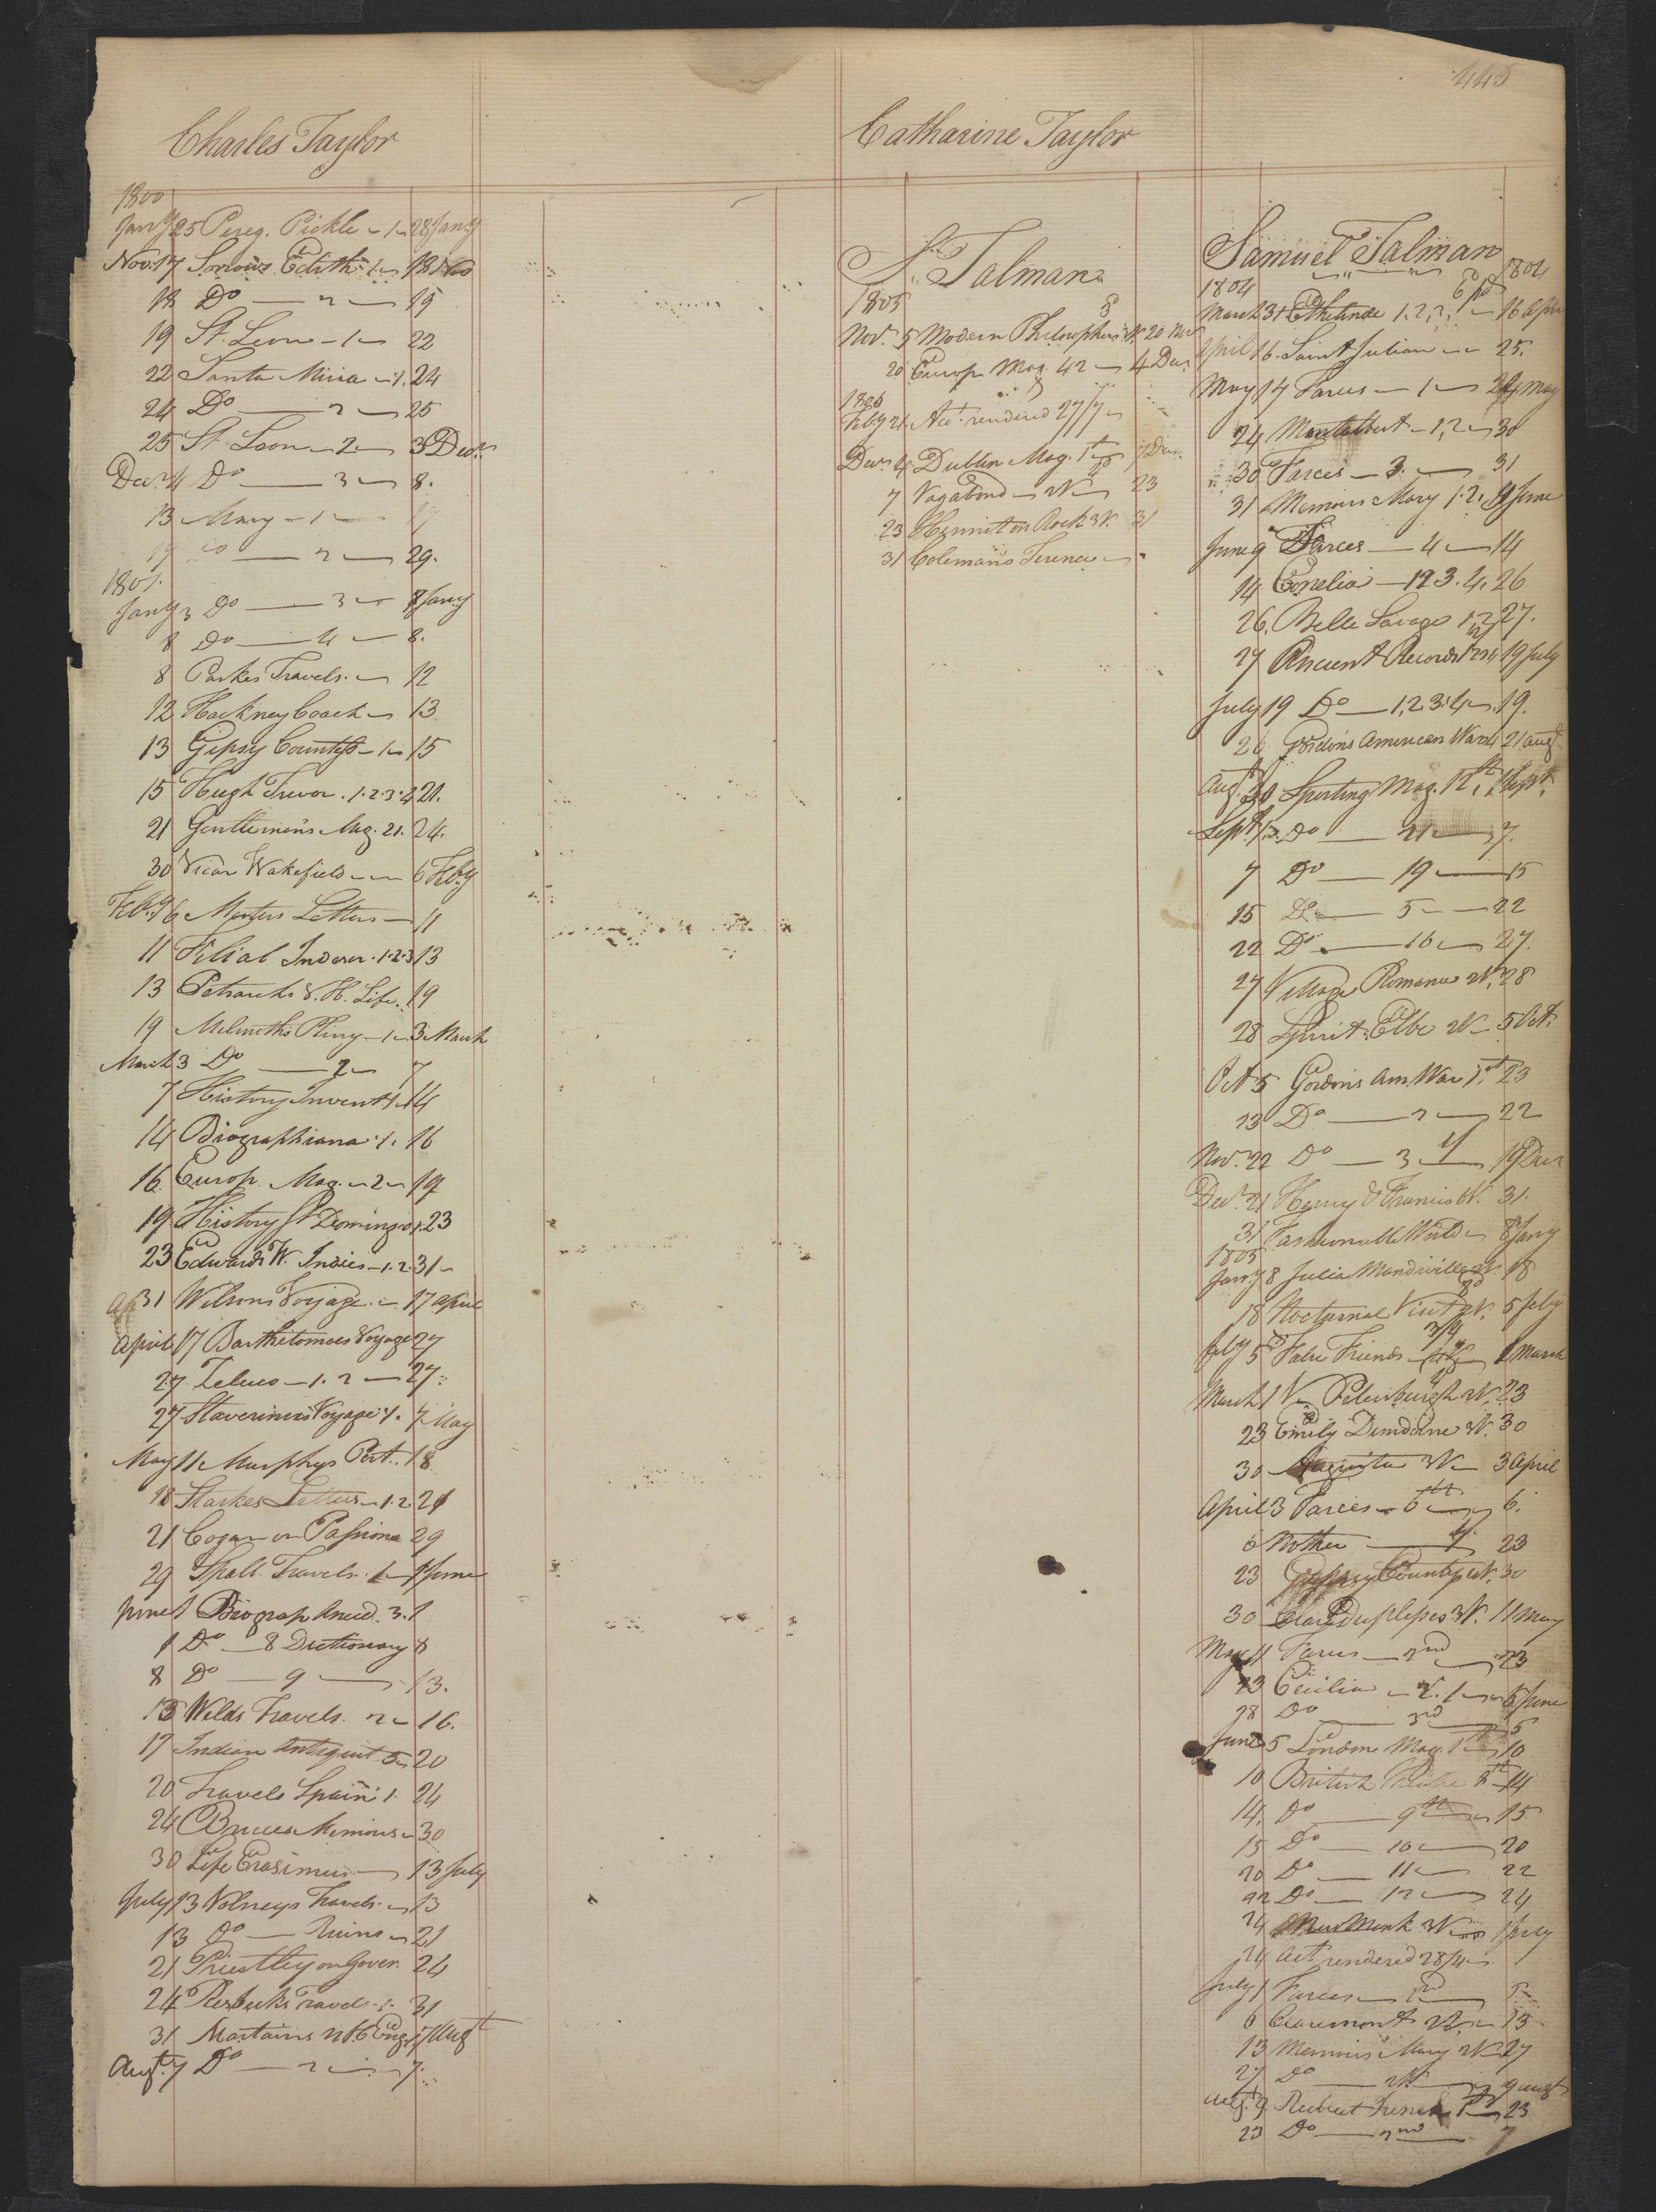 445
Charles Taylor
1800
Jany 25 Pereg. Pickle - 1 - 28 Jany
Nov. 17 Sorrows Edith - 1 - 18 Nov
18 Do - 2 - 19
19 St. Leon - 1 - 22
22 Santa Maria - 1. 24
24 Do - 2 - 25
25 St. Leon - 2 - 3 Decr.
Decr. 4 Do - 3 - 8.
13 Mary - 1 - 17
19 Do - 2 - 29.
1801.
Jany 3 Do - 3 - 8 Jany
8 Do - 4 - 8.
8 Parkes Travels. - 12
12 Hackney Coach - 13
13 Gipsy Countess - 1 - 15
15 Hugh Trevor. 1.2.3.4 21.
21 Gentlemen's Mag. 21. 24.
30 Vicar Wakefield - 6 Feby
Feby 6 Letters - 11
11 Filial Indever. 1.2.3 13
13 Petrarch's V. H. Life. 19
19 Melmoth's Pliny - 1 - 3 March
March 3 Do - 2 - 7
7 History Invent 1. 14
14 Biographiana. 1. 16
16 Europ. Mag. - 2 - 19
19 History St Domingo 1. 23
23 Edwards W. Indies - 1.2. 31 -
Ap 31 Wilsons Voyage. - 17 April
April 17 Bartholomeos Voyage 27
27 Zeluco - 1. 2 - 27.
27 Staverinus Voyage 1. 7 May
May 11 Murphys Port. 18
18 Starkes Letters - 1.2 21
21 Cogan on Passions 29
29 Spall. Travels. 1 - 1 June
June 1 Biograp Anecd. 3. 1
1 Do - 8 Dictionary 8
8 Do - 9 - 13.
13 Welds Travels. 2 - 16.
17 Indian Antiquit 5 - 20
20 Travels Spain 1. 24
24 Bruces Memoirs - 30
30 Life Erasmus - 13 July
July 13 Volneys Travels. - 13
13 Do - Ruins - 21
21 Priestley on Gover. 24
24 Travels - 1. 31
31 Martains Eng. 1 7 Augt
Augt. 7 Do - 2 - 7.
Catharine Taylor
S. Talman
1805
Nov. 5 Modern Philosophers 20 Nov
20 Europ Mag. 42 - 4 Decr.
1806
Feby 21. Act. rendered 27/7 -
Decr 4 Dublin Mag. 1st 7 Decr.
7 Vagabond - 2V - 23
23 Hermit on Rock 3V. 31
31 Coleman's Terence -
Samuel T Talman
1804 1804
March 31 Ethelinde 1.2.3. 16 Apr
April 16. Saint Julian - 25.
May 14 Farces - 1 - 24 May
24 Montalbert - 1, 2 - 30
30 Farces - 3. - 31
31 Memoirs Mary 1.2. 9 June
June 9 Farces - 4 - 14
14 Cornelia - 1 2 3. 4. 26
26. Belle Savage 1.2 27.
27 Ancient Records 19 July
July 19 Do - 1, 2. 3. 4 - 19.
26 Gordons American War 4 21 Augt.
Augt. 30 Sporting Mag. 12th. 1 Sept.
Sept. 1 Do - 21 - 7.
7 Do - 19 - 15
15 Do - 5 - 22
22 Do - 16 - 27.
27 Village Romance 2V. 28
28 Spirit Elbe 2V - 5 Oct.
Oct 5 Gordons Am. War 1st 23
23 Do - 2 - 22
Nov. 22 Do - 3 - 19 Decr
Decr. 21 Henry & Francis 31.
31. Fashionable World - 8 Jany
1805
Jany 8 Julia Mandiville 2V. 18
18 Nocturnal Visit 2V. 5 Feby
Feby 5 False Friends - 1 March
March 1 Petersburgh 2V. 23
23 Emily Dundorne 3V. 30
30 Augusta 3V - 3 April
April 3 Farces - 6th - 6.
6 Mother - 23
23 Gypsey Countess 30
30 Clara Duplessis 3V. 11 May
May 11 Farces - 2nd - 23
23 Cecilia - V. 1 - 5 June
28 Do - 3rd - 5
June 5 London Mag. 1st 10
10 British Theatre 8th - 14
14. Do - 9th - 15
15 Do - 10 - 20
20 Do - 11 - 22
22 Do - 12 - 24
24 New Monk 3V - 1 July
24 Act rendered 28/4 -
July 1 Farces - 2nd - 5 -
6 Claremont 2V. - 13
13 Memoirs Mary 2V 27
27 Do - 9 Augt
Augt. 9 23
23 Do - 2nd - 7